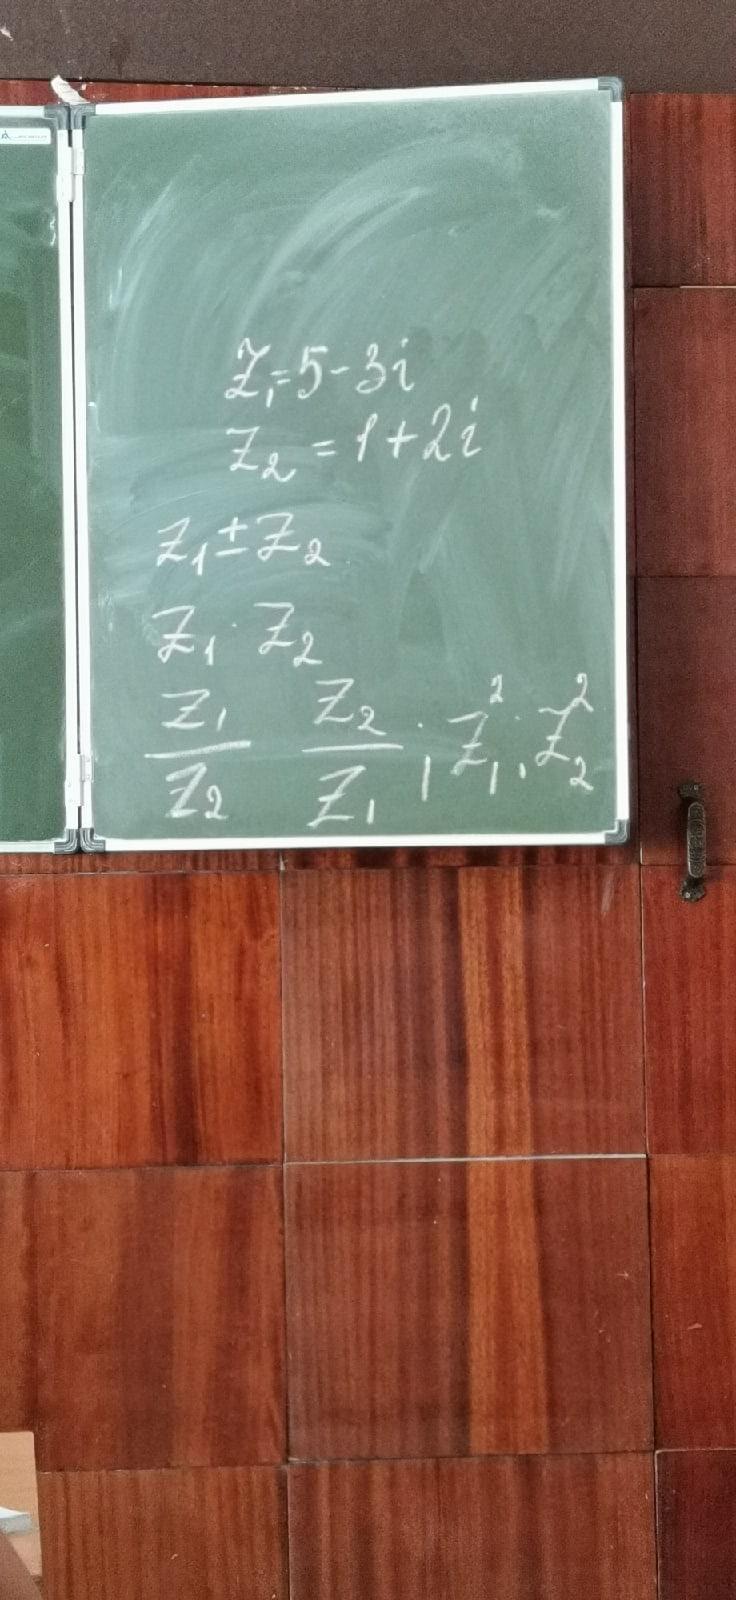 Z₁=5-3i
Z₂=1+2i
Z₁±Z₂
Z₁·Z₂
Z₁/Z₂ Z₂/Z₁; Z₁²; Z₂²